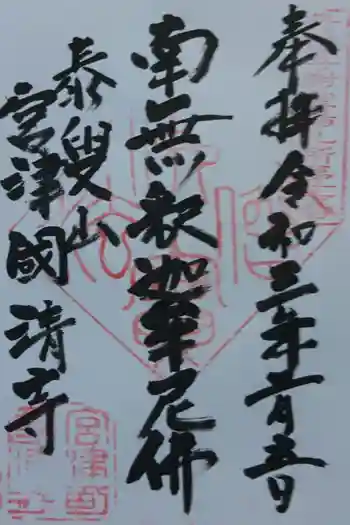 奉拝 令和三年二月五日
南無釈迦牟尼佛
泰叟山
宮津國清寺